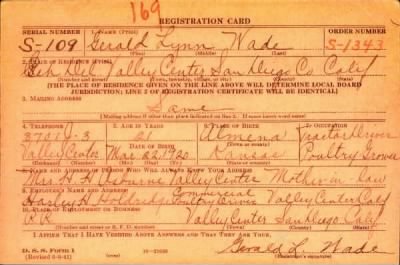 169
REGISTRATION CARD
SERIAL NUMBER 1. NAME (Print) ORDER NUMBER
S-109 Gerald Lynn Wade S-1343
(First) (Middle) (Last)
2. PLACE OF RESIDENCE (Print)
Valley Center San Diego Co Calif
[THE PLACE OF RESIDENCE GIVEN ON THE LINE ABOVE WILL DETERMINE LOCAL BOARD
JURISDICTION; LINE 2 OF REGISTRATION CERTIFICATE WILL BE IDENTICAL]
3. MAILING ADDRESS
Same
[Mailing address if other than place indicated on line 2. If same insert word same]
4. TELEPHONE 5. AGE IN YEARS 6. PLACE OF BIRTH 7. OCCUPATION
21 Almena Tractor Driver
Valley Center DATE OF BIRTH Kansas Poultry Grower
Mar 22 1920
8. NAME AND ADDRESS OF PERSON WHO WILL ALWAYS KNOW YOUR ADDRESS
Mrs. Valley Center Mother-in-law
9. EMPLOYER'S NAME AND ADDRESS
Harley H. Holdridge Commercial Valley Center Calif
10. PLACE OF EMPLOYMENT OR BUSINESS
R.R. Valley Center San Diego Calif
I AFFIRM THAT I HAVE VERIFIED ABOVE ANSWERS AND THAT THEY ARE TRUE.
D. S. S. Form 1
Gerald L. Wade
(Registrant's signature)